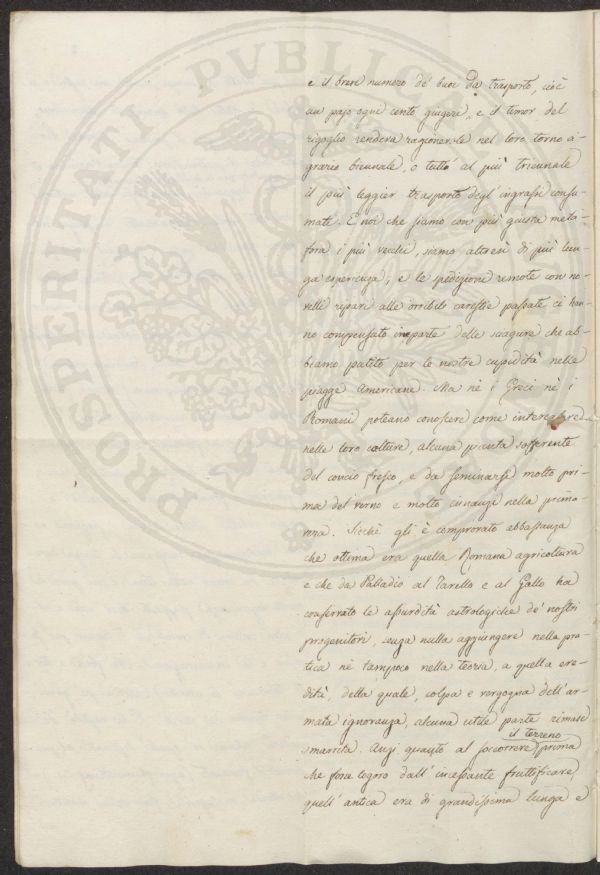 PROSPERITATI PUBLICAE
e il breve numero de' buoi da trasporto, cioè
un pajo ogni cento giugeri, e il timor del
rigoglio rendeva ragionevole nel loro torno a-
grario biennale, o tutto al più triennale
il più leggier trasporto degl'ingrassi consu-
mati. E noi che siamo con più giusta meta-
fora i più vecchi, siamo altresì di più lun-
ga esperienza; e le spedizioni remote con no-
velli ripari alle orribili carestie passate ci han-
no compensato in parte delle sciagure che ab-
biamo patito per le nostre cupidità nelle
piagge Americane. Ma nè i Greci nè i
Romani poteano conoscere come intercalare
nelle loro colture, alcuna pianta sofferente
del concio fresco, e da seminarsi molto pri-
ma del verno e molto innanzi nella prima-
vera. Sicchè gli è comprovato abbastanza
che ottima era quella Romana agricoltura
e che da Palladio al Tarello e al Gallo ha
conservato le assurdità astrologiche de' nostri
progenitori, senza nulla aggiungere nella pra-
tica nè tampoco nella teoria, a quella ere-
dità, della quale, colpa e vergogna dell'ar-
mata ignoranza, alcuna utile parte rimase
il terreno
smarrita. Anzi quanto al soccorrere prima
che fosse logoro dall'incessante fruttificare,
quell'antica era di grandissima lunga e